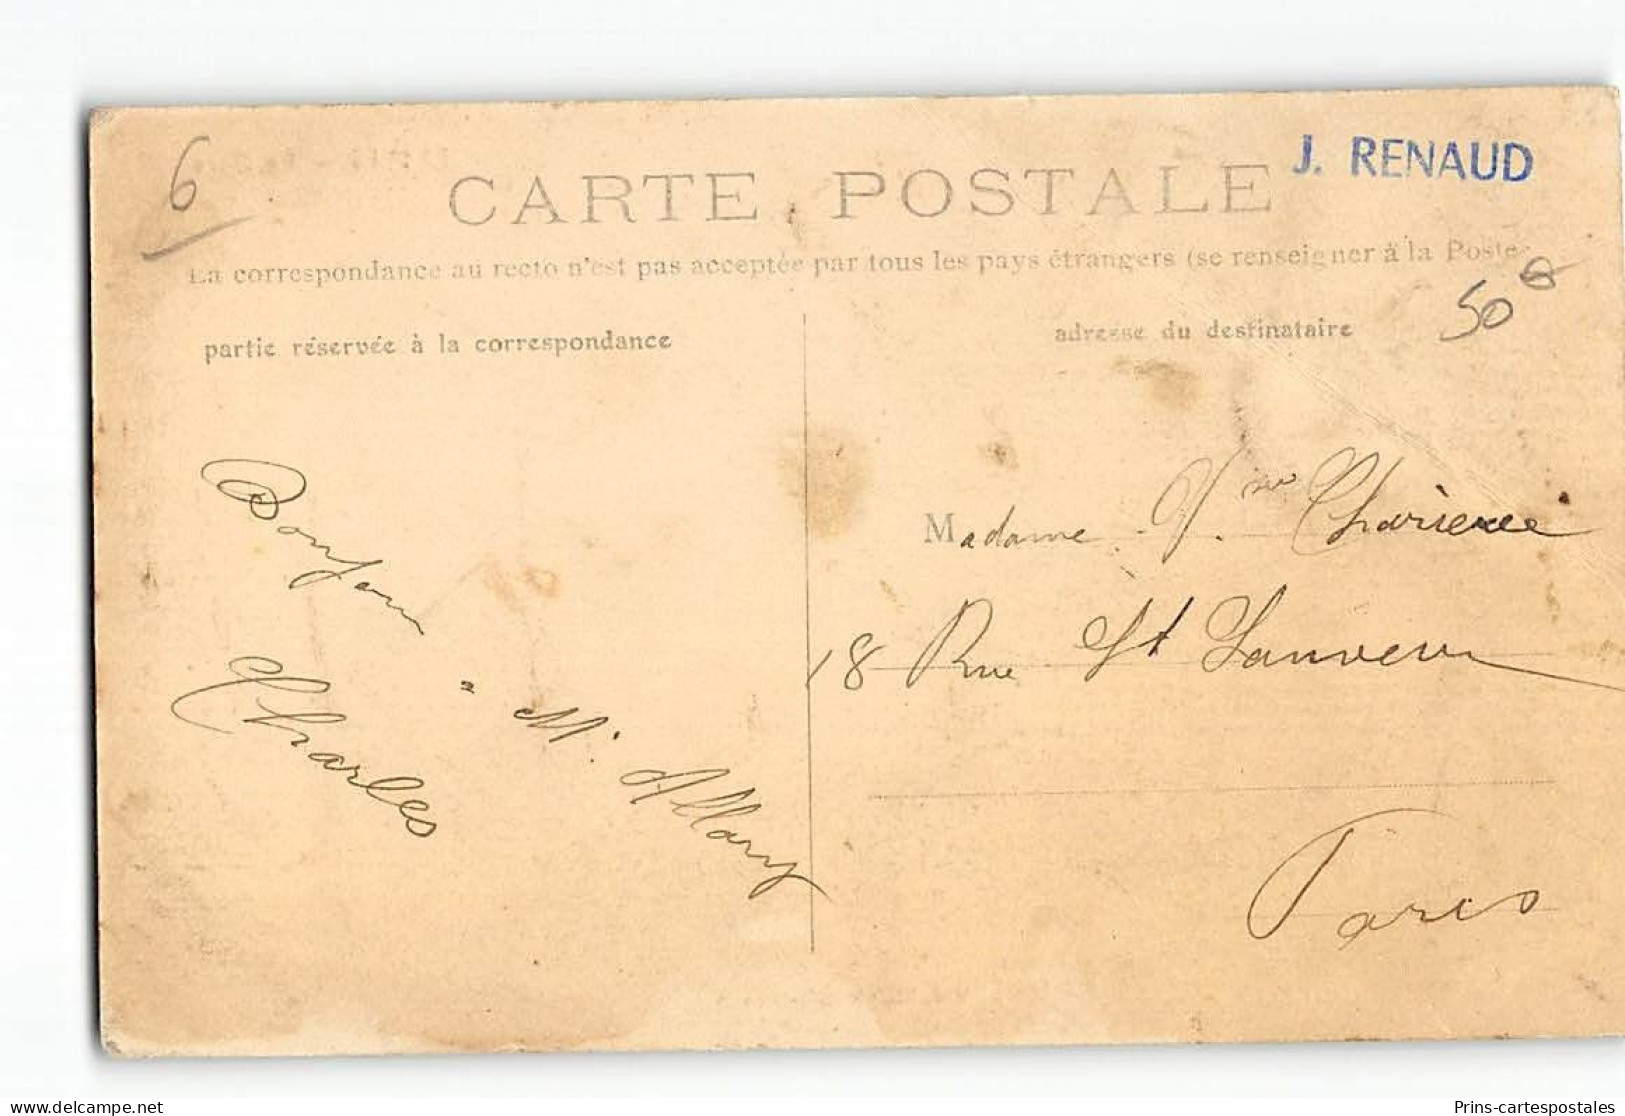 6
J. RENAUD
CARTE POSTALE
La correspondance au recto n'est pas acceptée par tous les pays étrangers (se renseigner à la Poste
50
partie réservée à la correspondance
adresse du destinataire
Bonjour
Charles
M. Allary
Madame Vve
18 Rue St Sauveur
Paris
www.delcampe.net
Prins-cartespostales